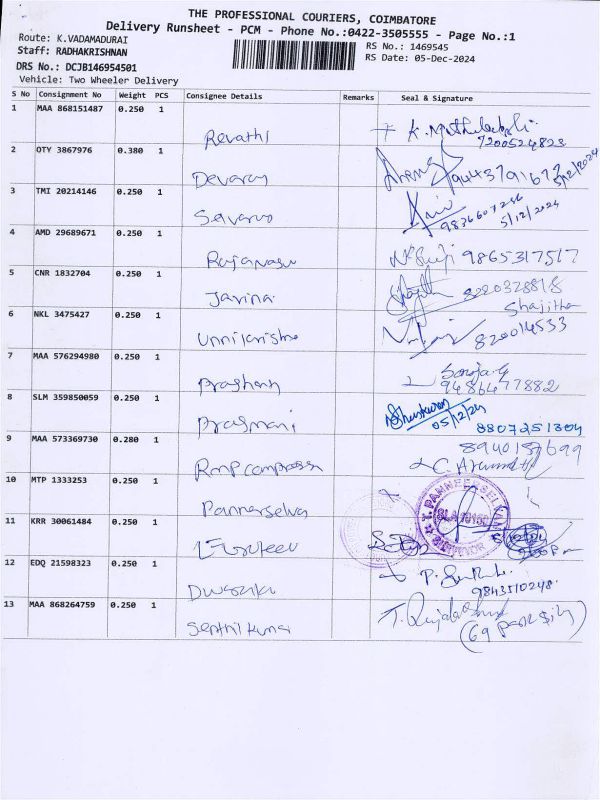 THE PROFESSIONAL COURIERS, COIMBATORE
Delivery Runsheet - PCM - Phone No.:0422-3505555 - Page No.:1
Route: K.VADAMADURAI
Staff: RADHAKRISHNAN
DRS No.: DCJB146954501
Vehicle: Two Wheeler Delivery
RS No.: 1469545
RS Date: 05-Dec-2024
S No Consignment No Weight PCS Consignee Details Remarks Seal & Signature
1 MAA 868151487 0.250 1
Revathi
7200524823
2 OTY 3867976 0.380 1
Devaraj
5/12/2024
3 TMI 20214146 0.250 1
9836607246
5/12/2024
4 AMD 29689671 0.250 1
9865317517
5 CNR 1832704 0.250 1
Javina
8220328818
Shajitha
6 NKL 3475427 0.250 1
Unnikrishna
820014533
7 MAA 576294980 0.250 1
Prashanth
9486477882
8 SLM 359850059 0.250 1
05/12/24
8807251304
9 MAA 573369730 0.280 1
RMP compressor
8940157699
10 MTP 1333253 0.250 1
Pannerselva
T. PANNEERSELVAM
SURVEYOR
11 KRR 30061484 0.250 1
12 EDQ 21598323 0.250 1
9843510248
13 MAA 868264759 0.250 1
Senthilkumar